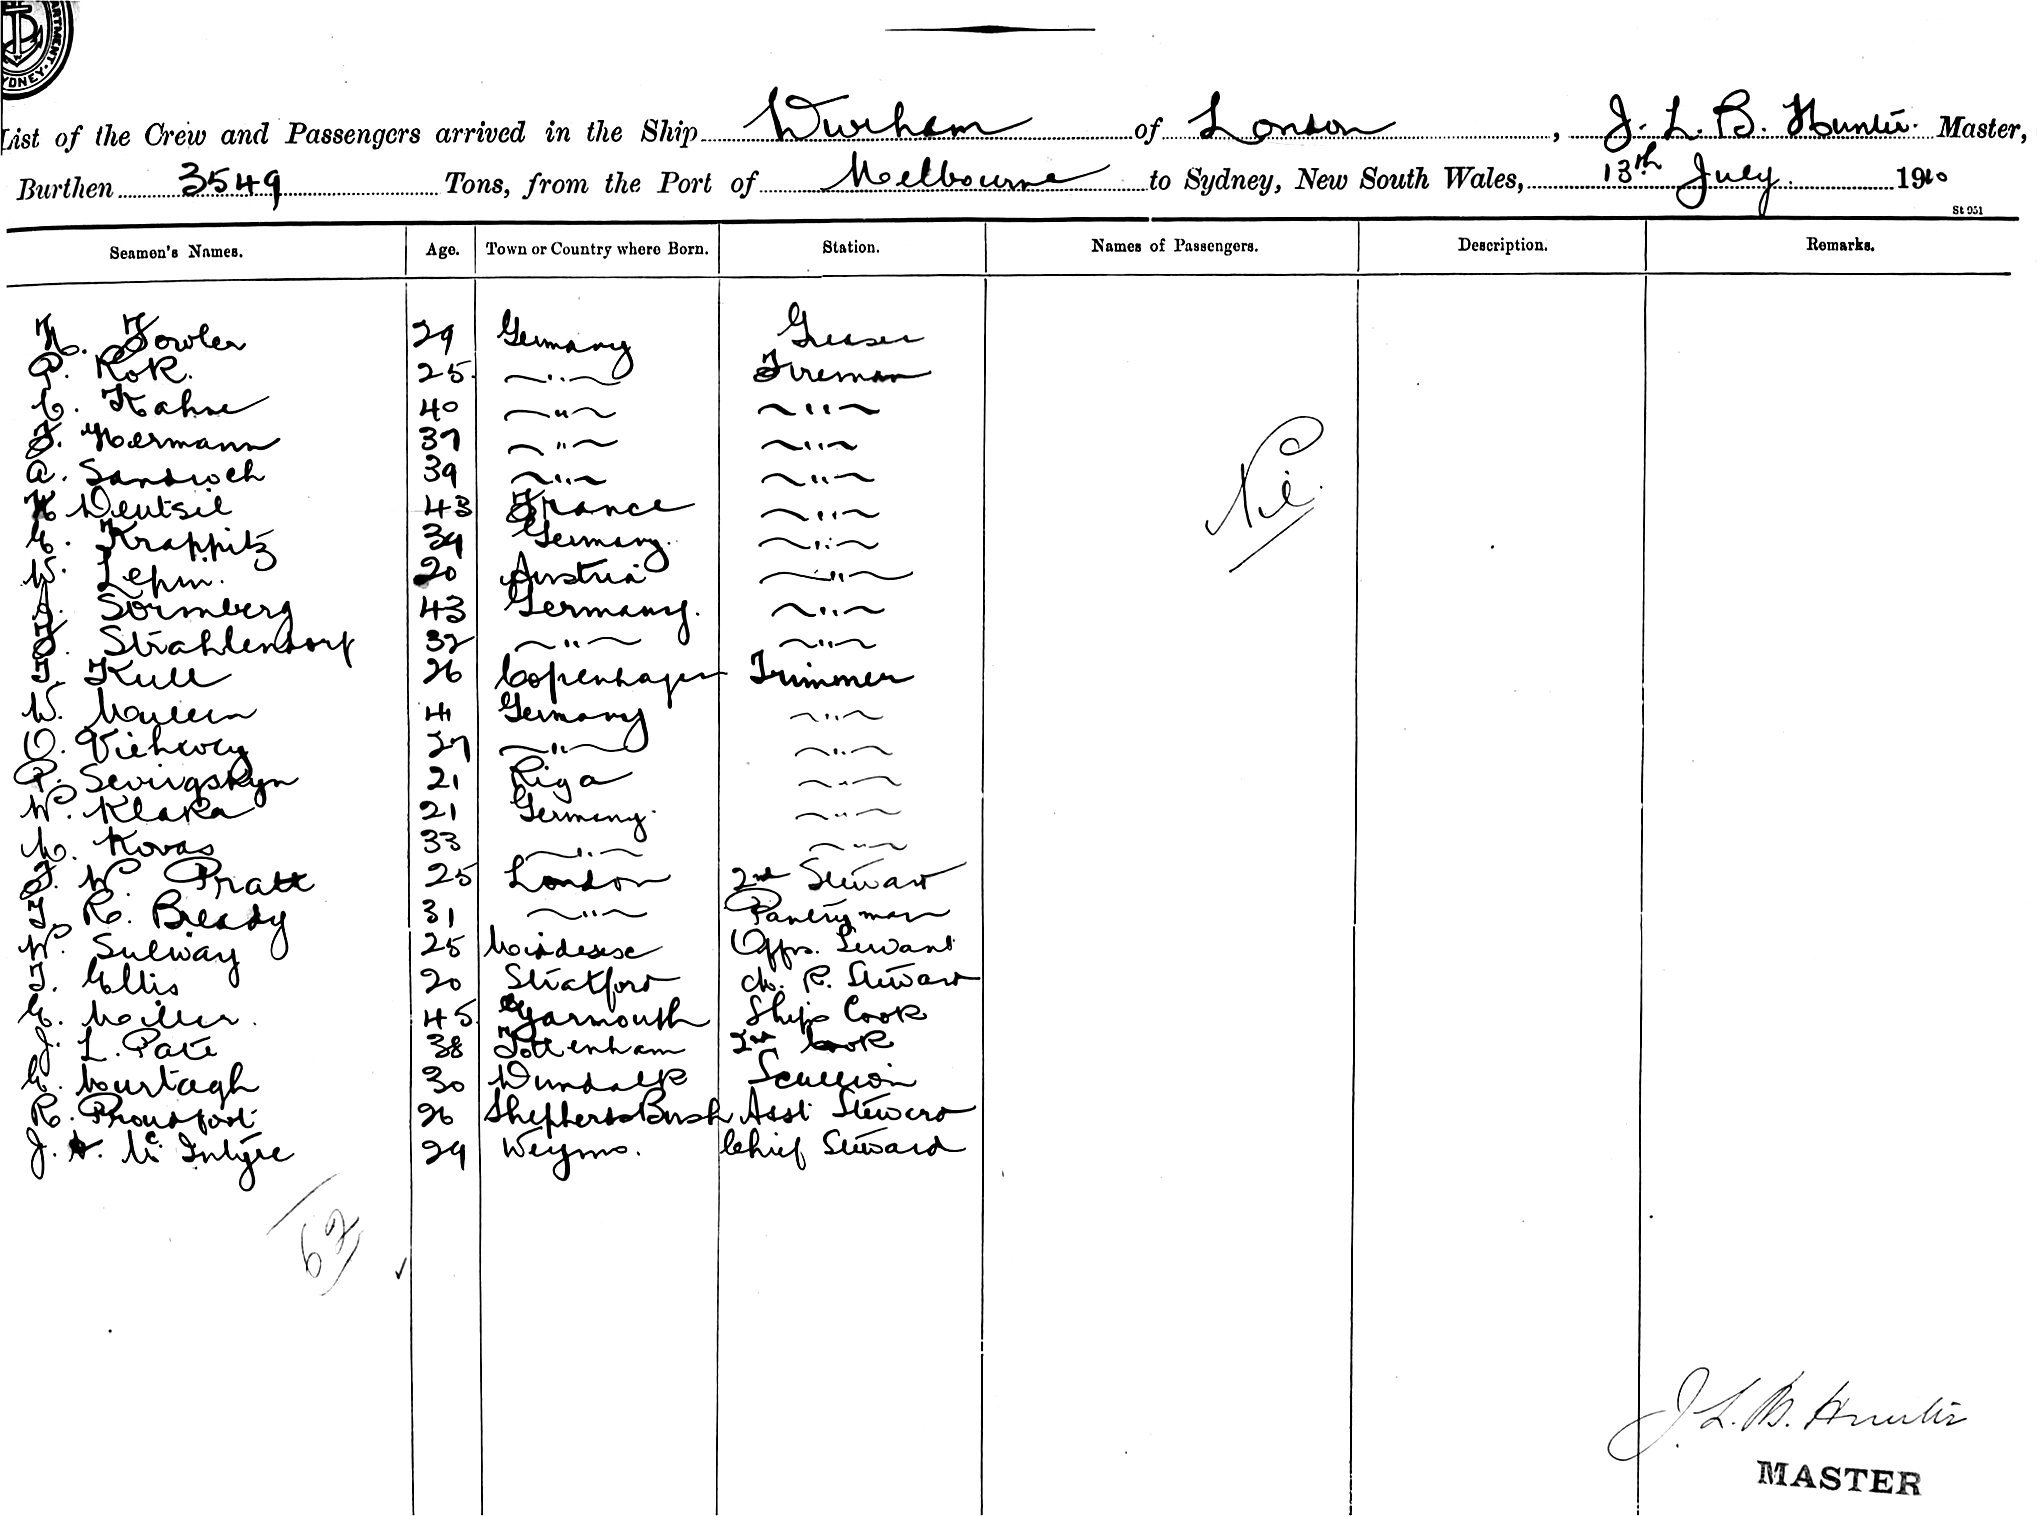 ARTMENT. YDNEY.
List of the Crew and Passengers arrived in the Ship Durham of London, J. L. B. Hunter. Master,
Burthen 3549 Tons, from the Port of Melbourne to Sydney, New South Wales, 13th July 1910
St 951
Seamen's Names. Age. Town or Country where Born. Station. Names of Passengers. Description. Remarks.
H. Fowler 29 Germany Greaser
P. Kok. 25 〃 Fireman
C. Kahne 40 〃 〃
F. Hermann 37 〃 〃
A. Sandroch 39 〃 〃
H Deutsil 43 France 〃
E. Krappitz 39 Germany. 〃
W. Lepin. 20 Austria 〃
Sormberg 43 Germany. 〃
F. Strahlendorf 32 〃 〃
T. Kull 26 Copenhagen Trimmer
W. 41 Germany 〃
O. Viehweg 27 〃 〃
P. 21 Riga 〃
W. Klaka 21 Germany. 〃
M. Kovas 33 〃 〃
F. W. Pratt 25 London 2nd Steward
T. R. Bready 31 〃 Pantryman
W. Sulway 25 Middlesex Offrs. Servant
T. Ellis 20 Stratford Ch. R. Steward
E. Miller. 45 Yarmouth Ships Cook
J. L. Pate 38 Tottenham 2nd Cook
E. Murtagh 30 Dundalk Scullion
R. Proudfoot 26 Shepherds Bush Asst Steward
J. Mc Intyre 29 Weymo. Chief Steward
Nil.
62
J. L. B. Hunter
MASTER